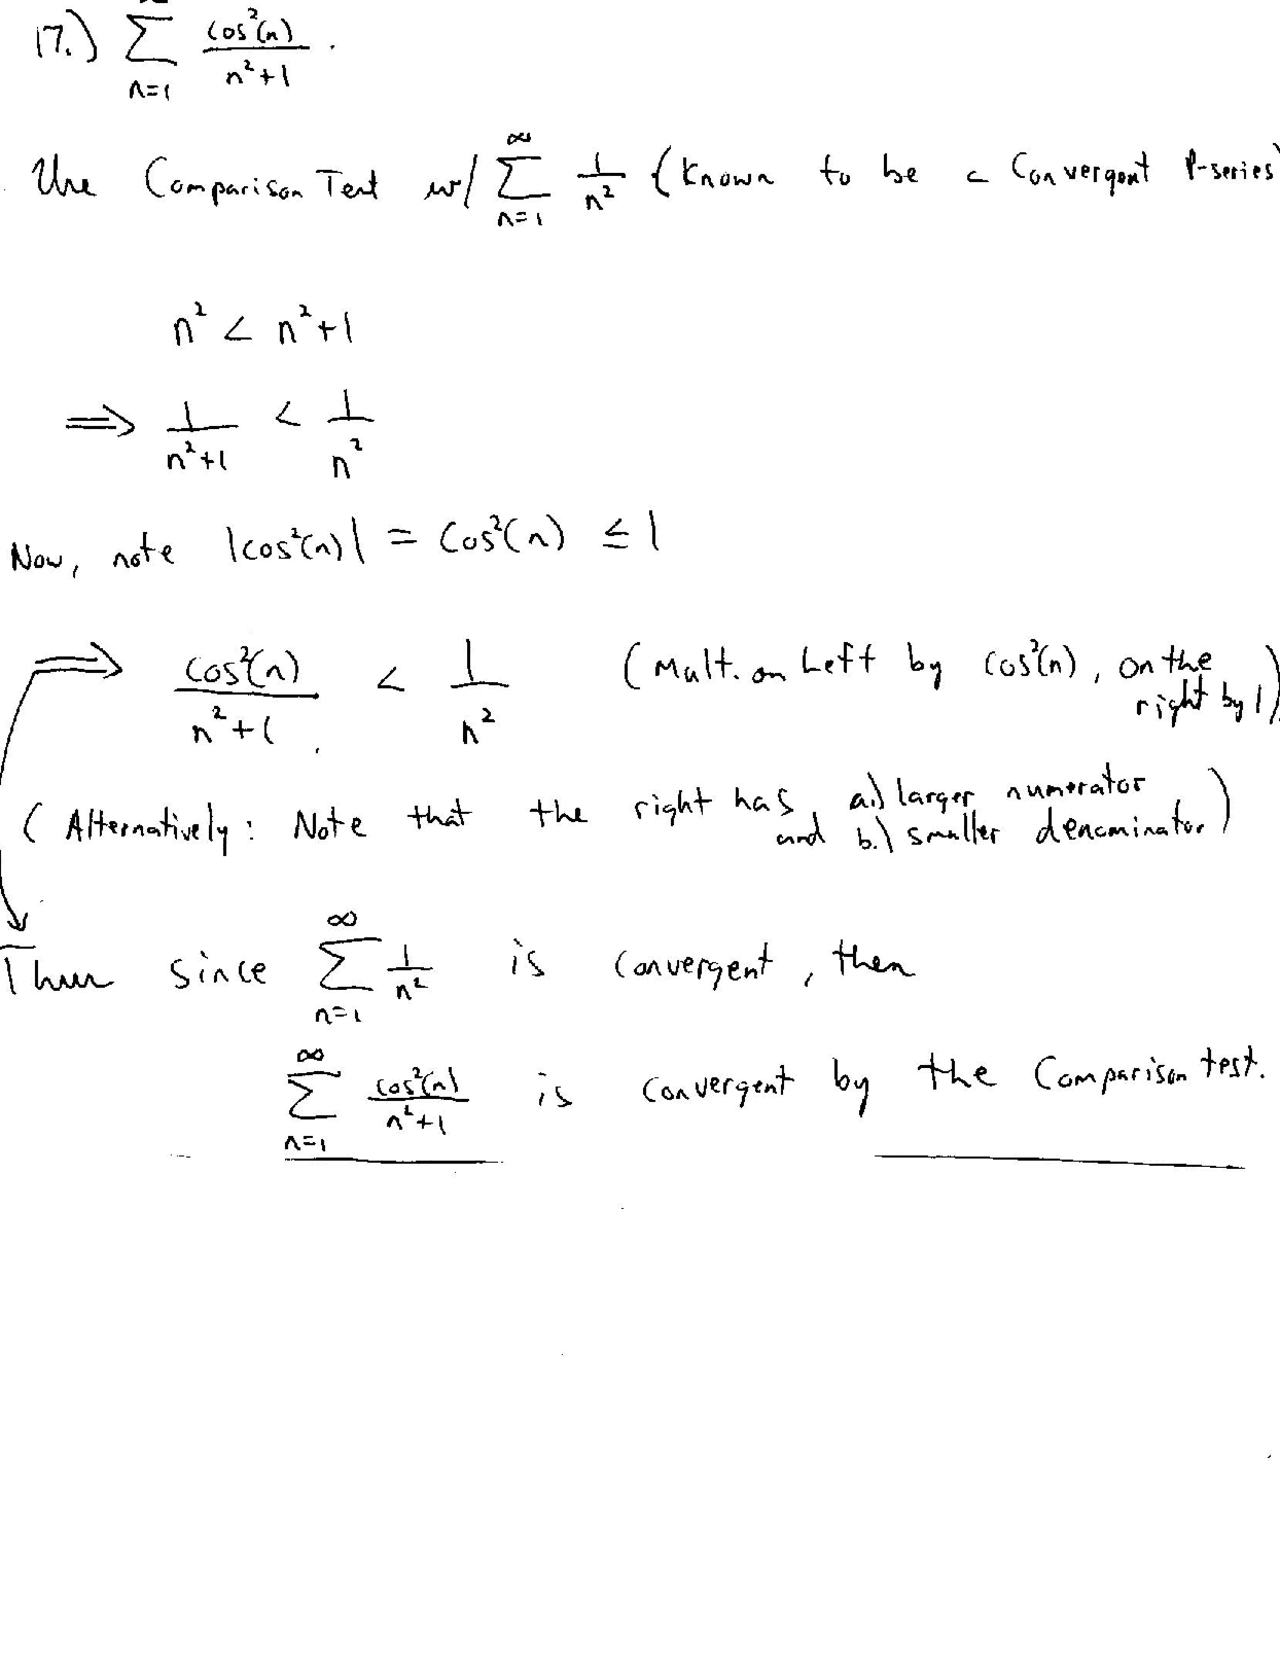 17.) ∑_{n=1}^{∞} cos²(n)/(n²+1).
Use Comparison Test w/ ∑_{n=1}^{∞} 1/n² (Known to be a Convergent P-series)
n² < n²+1
⟹ 1/(n²+1) < 1/n²
Now, note |cos²(n)| = Cos²(n) ≤ 1
⟹ cos²(n)/(n²+1) < 1/n² (Mult. on Left by cos²(n), on the right by 1)
(Alternatively: Note that the right has a.) larger numerator
and b.) smaller denominator)
Thus since ∑_{n=1}^{∞} 1/n² is convergent, then
∑_{n=1}^{∞} cos²(n)/(n²+1) is convergent by the Comparison test.